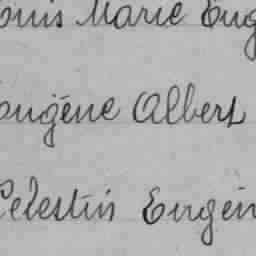 ouis Marie Eug
ugène Albert
Celestin Eugèn